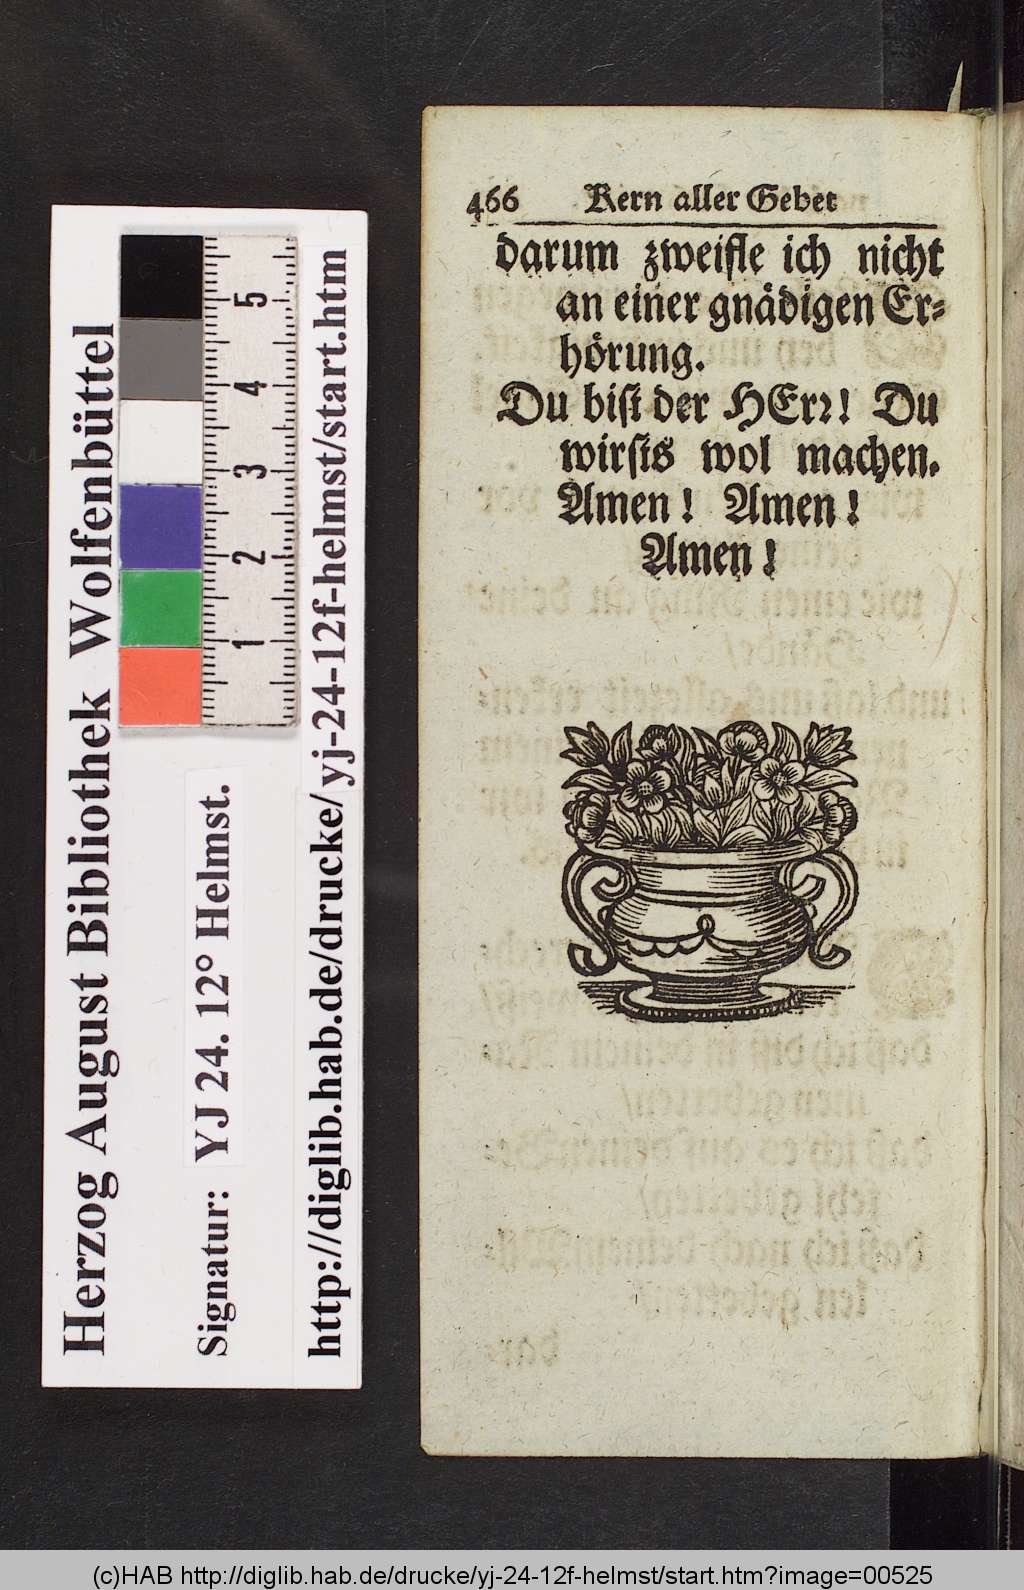 Herzog August Bibliothek Wolfenbüttel
Signatur: YJ 24. 12° Helmst.
http://diglib.hab.de/drucke/yj-24-12f-helmst/start.htm
1 2 3 4 5
466 Kern aller Gebet
darum zweifle ich nicht
an einer gnädigen Er⸗
hörung.
Du bist der HErꝛ! Du
wirsts wol machen.
Amen! Amen!
Amen!
(c)HAB http://diglib.hab.de/drucke/yj-24-12f-helmst/start.htm?image=00525